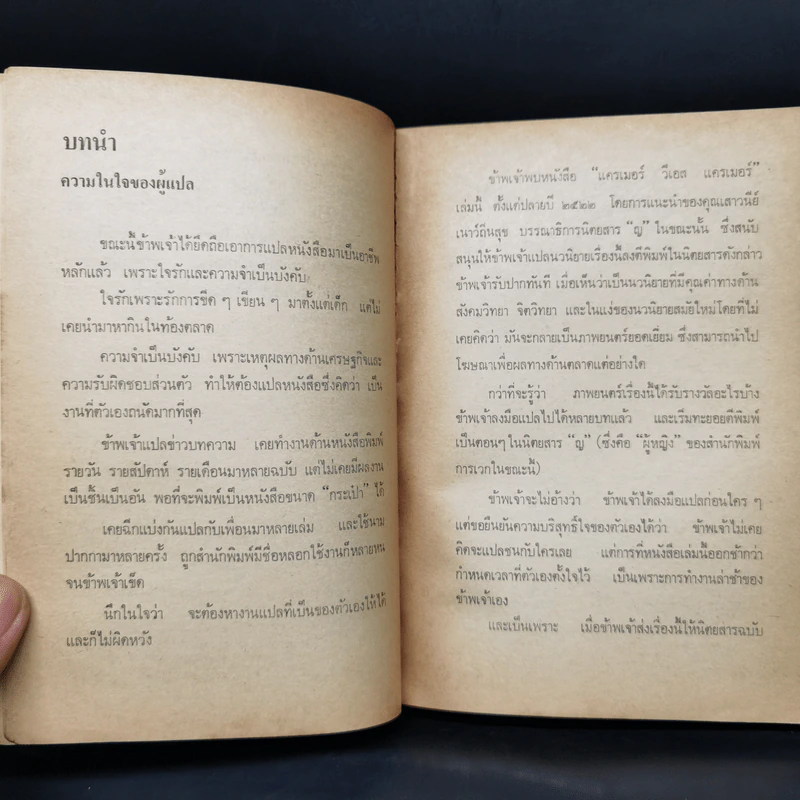 บทนำ
ความในใจของผู้แปล
ขณะนี้ข้าพเจ้าได้ยึดถือเอาการแปลหนังสือมาเป็นอาชีพ
หลักแล้ว เพราะใจรักและความจำเป็นบังคับ
ใจรักเพราะรักการขีด ๆ เขียน ๆ มาตั้งแต่เด็ก แต่ไม่
เคยนำมาหากินในท้องตลาด
ความจำเป็นบังคับ เพราะเหตุผลทางด้านเศรษฐกิจและ
ความรับผิดชอบส่วนตัว ทำให้ต้องแปลหนังสือซึ่งคิดว่า เป็น
งานที่ตัวเองถนัดมากที่สุด
ข้าพเจ้าแปลข่าวบทความ เคยทำงานด้านหนังสือพิมพ์
รายวัน รายสัปดาห์ รายเดือนมาหลายฉบับ แต่ไม่เคยมีผลงาน
เป็นชิ้นเป็นอัน พอที่จะพิมพ์เป็นหนังสือขนาด “กระเป๋า” ได้
เคยฉีกแบ่งกันแปลกับเพื่อนมาหลายเล่ม และใช้นาม
ปากกามาหลายครั้ง ถูกสำนักพิมพ์มีชื่อหลอกใช้งานก็หลายหน
จนข้าพเจ้าเข็ด
นึกในใจว่า จะต้องหางานแปลที่เป็นของตัวเองให้ได้
และก็ไม่ผิดหวัง
ข้าพเจ้าพบหนังสือ “แครเมอร์ วีเอส แครเมอร์”
เล่มนี้ ตั้งแต่ปลายปี ๒๕๒๒ โดยการแนะนำของคุณเสาวนีย์
เนาว์ถิ่นสุข บรรณาธิการนิตยสาร “ญ” ในขณะนั้น ซึ่งสนับ
สนุนให้ข้าพเจ้าแปลนวนิยายเรื่องนี้ลงตีพิมพ์ในนิตยสารดังกล่าว
ข้าพเจ้ารับปากทันที เมื่อเห็นว่าเป็นนวนิยายที่มีคุณค่าทางด้าน
สังคมวิทยา จิตวิทยา และในแง่ของนวนิยายสมัยใหม่โดยที่ไม่
เคยคิดว่า มันจะกลายเป็นภาพยนตร์ยอดเยี่ยม ซึ่งสามารถนำไป
โฆษณาเพื่อผลทางด้านตลาดแต่อย่างใด
กว่าที่จะรู้ว่า ภาพยนตร์เรื่องนี้ได้รับรางวัลอะไรบ้าง
ข้าพเจ้าลงมือแปลไปได้หลายบทแล้ว และเริ่มทะยอยตีพิมพ์
เป็นตอนๆ ในนิตยสาร “ญ” (ซึ่งคือ “ผู้หญิง” ของสำนักพิมพ์
การเวกในขณะนี้)
ข้าพเจ้าจะไม่อ้างว่า ข้าพเจ้าได้ลงมือแปลก่อนใคร ๆ
แต่ขอยืนยันความบริสุทธิ์ใจของตัวเองได้ว่า ข้าพเจ้าไม่เคย
คิดจะแปลชนกับใครเลย แต่การที่หนังสือเล่มนี้ออกช้ากว่า
กำหนดเวลาที่ตัวเองตั้งใจไว้ เป็นเพราะการทำงานล่าช้าของ
ข้าพเจ้าเอง
และเป็นเพราะ เมื่อข้าพเจ้าส่งเรื่องนี้ให้นิตยสารฉบับ